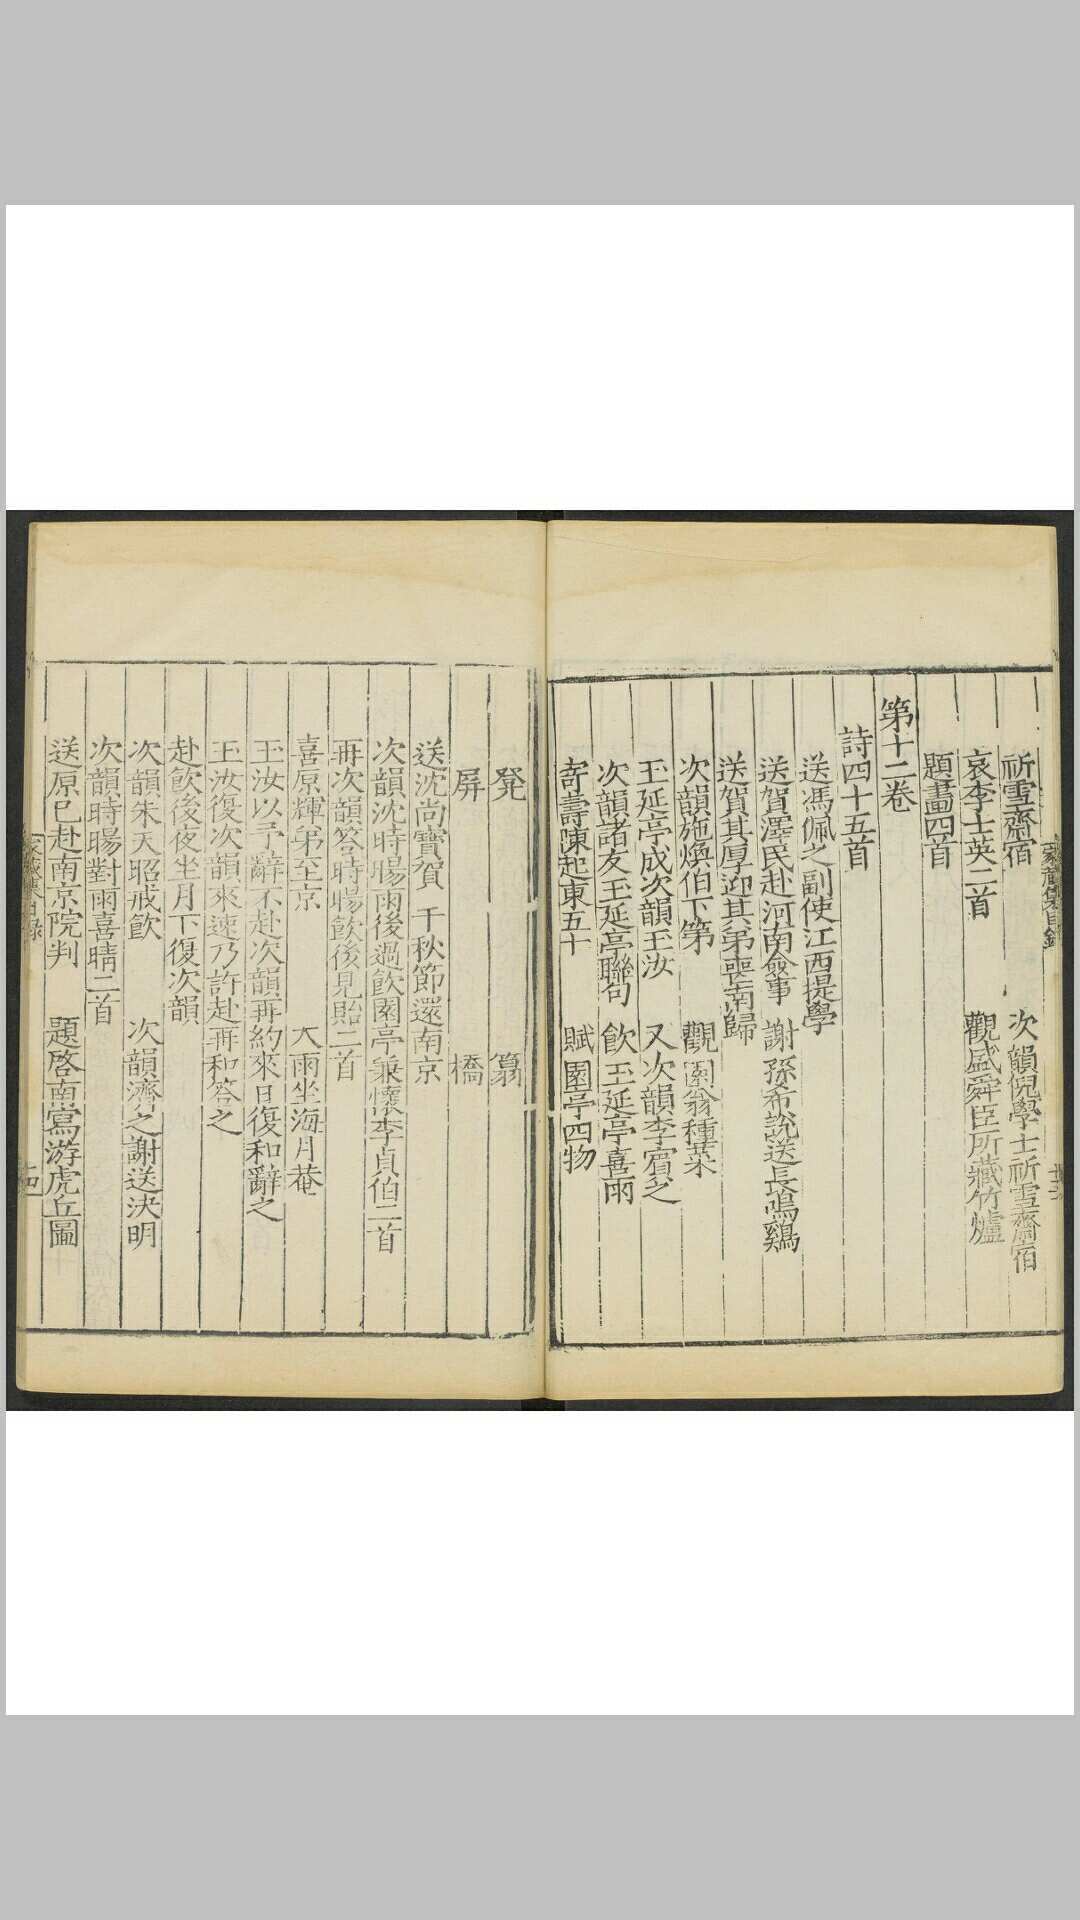 祈雪齋宿　次韻倪學士祈雪齋宿
哀李士英二首　觀盛舜臣所藏竹爐
題畫四首
第十二卷
詩四十五首
送馮佩之副使江西提學
送賀澤民赴河南僉事　謝孫希說送長鳴鷄
送賀其厚迎其弟喪南歸
次韻施煥伯下第　觀園翁種菜
玉延亭成次韻玉汝　又次韻李賓之
次韻諸友玉延亭聯句　飲玉延亭喜雨
寄壽陳起東五十　賦園亭四物
凳　篛
屏　橋
送沈尚寶賀千秋節還南京
次韻沈時暘雨後過飲園亭兼懷李貞伯二首
再次韻答時暘飲後見貽二首
喜原輝弟至京　大雨坐海月菴
玉汝以予辭不赴次韻再約來日復和辭之
玉汝復次韻來速乃許赴再和答之
赴飲後夜坐月下復次韻
次韻朱天昭戒飲　次韻濟之謝送決明
次韻時暘對雨喜晴二首
送原已赴南京院判　題啓南寫游虎丘圖
家藏集目錄